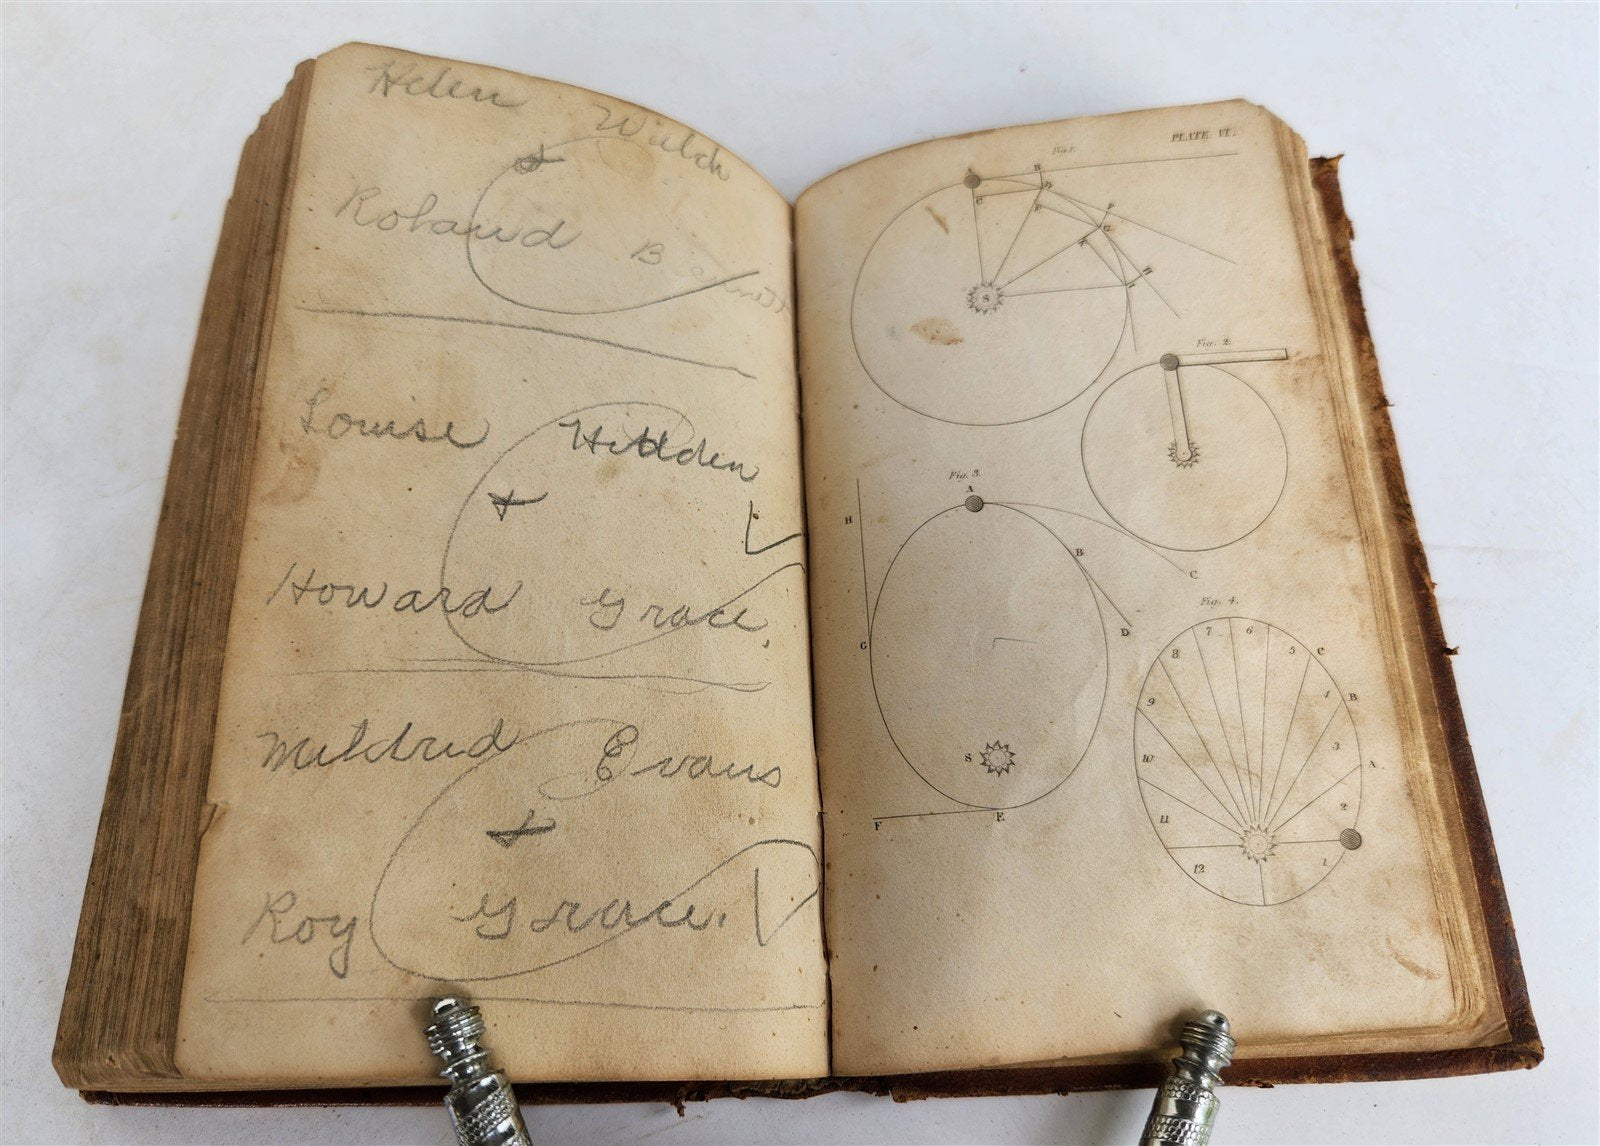 Helen Walch
+
Roland B
Louise Hidden
+
Howard Grace,
Mildred Evans
+
Roy Grace.
PLATE VI.
Fig. 1.
A
B
C
S
Fig. 2.
Fig. 3.
A
H
B
C
D
G
S
F
E
Fig. 4.
7 6
8 5 C
9 4 B
3
10 A
2
11
12 1